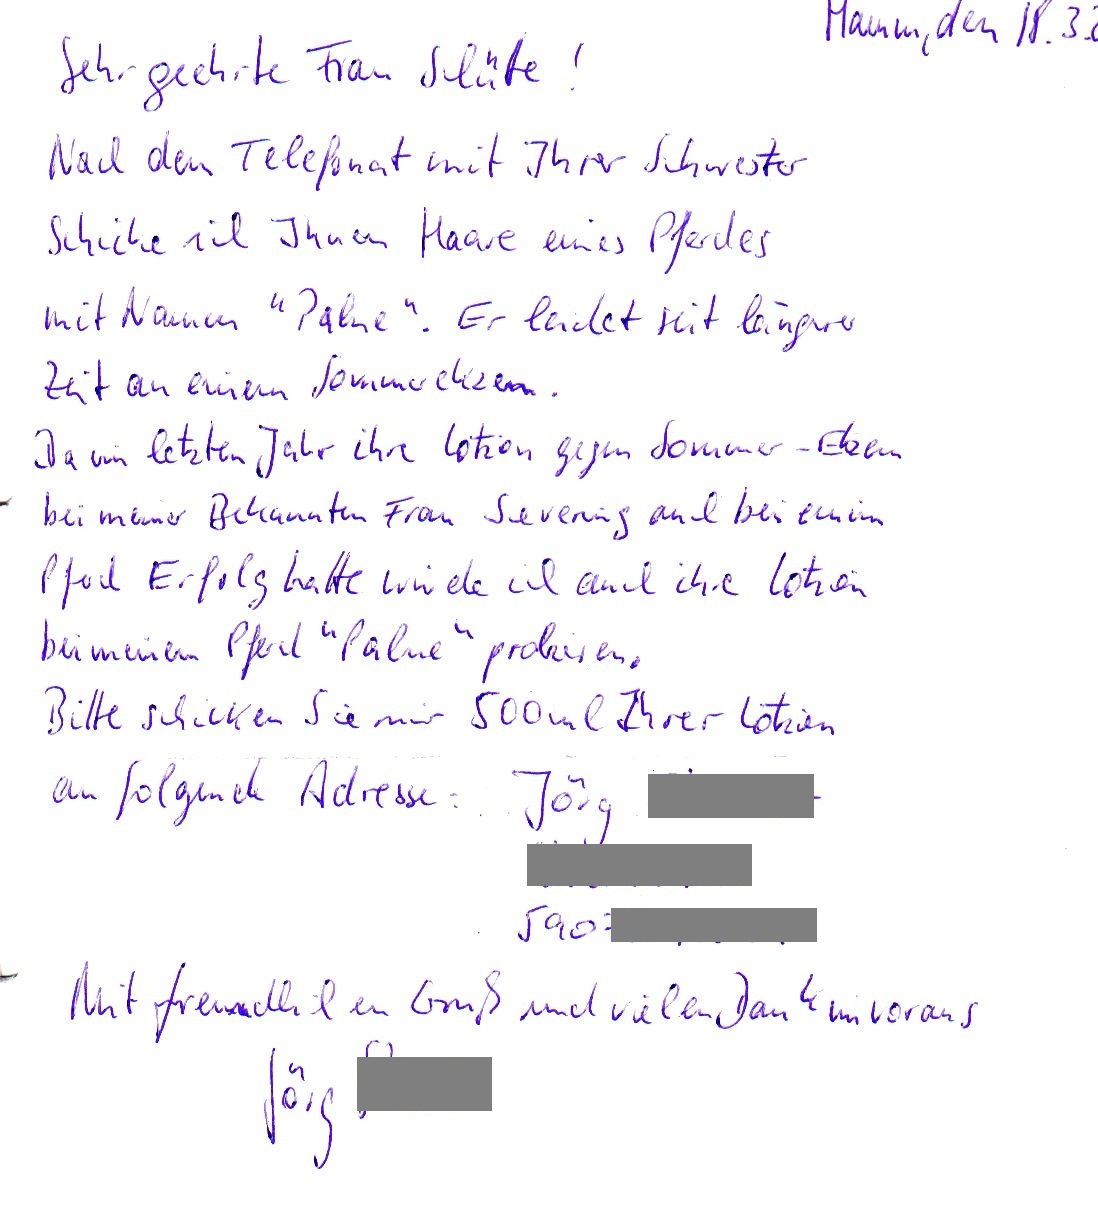 Hamm, den 18.3.
Sehr geehrte Frau Schütte!
Nach dem Telefonat mit Ihrer Schwester
Schicke ich Ihnen Haare eines Pferdes
mit Namen "Palme". Er leidet seit längerer
Zeit an einem Sommerekzem.
Da im letzten Jahr ihre Lotion gegen Sommer-Ekzem
bei meiner Bekannten Frau Severing auch bei einem
Pferd Erfolg hatte würde ich auch ihre Lotion
bei meinem Pferd "Palme" probieren.
Bitte schicken Sie mir 500ml Ihrer Lotion
an folgende Adresse: Jörg
590
Mit freundlichen Gruß und vielen Dank im voraus
Jörg